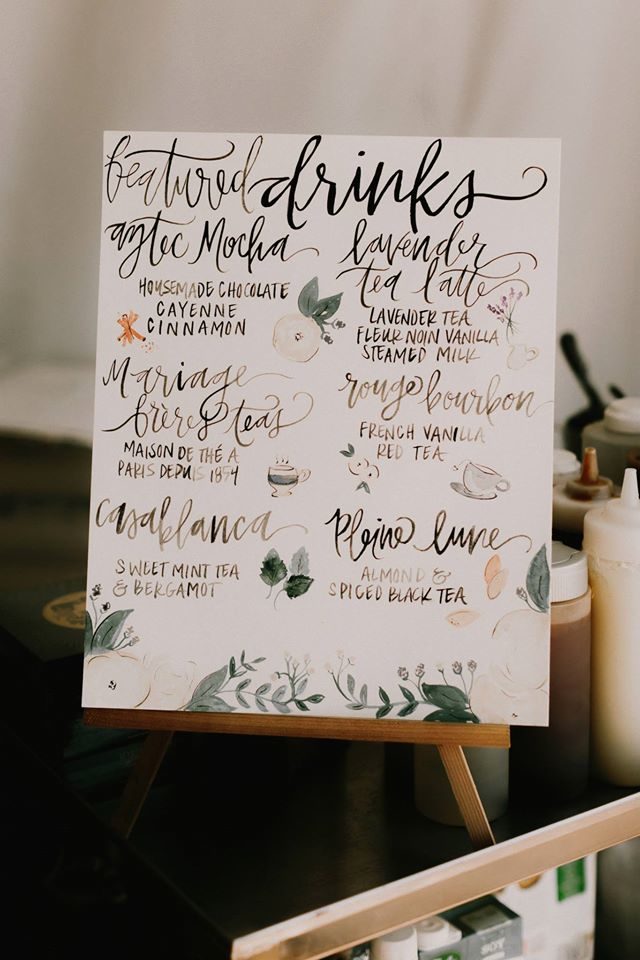 featured drinks
aztec Mocha
HOUSEMADE CHOCOLATE
CAYENNE
CINNAMON
lavender
tea latte
LAVENDER TEA
FLEUR NOIN VANILLA
STEAMED MILK
Mariage
frères teas
MAISON DE THÉ A
PARIS DEPUIS 1854
rouge bourbon
FRENCH VANILLA
RED TEA
Casablanca
SWEET MINT TEA
& BERGAMOT
Pleine lune
ALMOND &
SPICED BLACK TEA